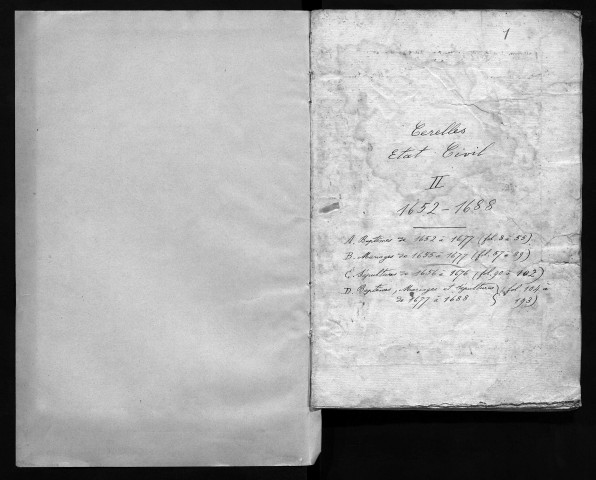 1
Cerelles
Etat Civil
II
1652-1688
A. Baptêmes de 1652 à 1677 (fol. 3 à 55)
B. Mariages de 1655 à 1677 (fol. 57 à 89)
C. Sépultures de 1656 à 1676 (fol. 90 à 102)
D. Baptêmes, Mariages et Sépultures } (fol. 104 à
de 1677 à 1688 } 193)